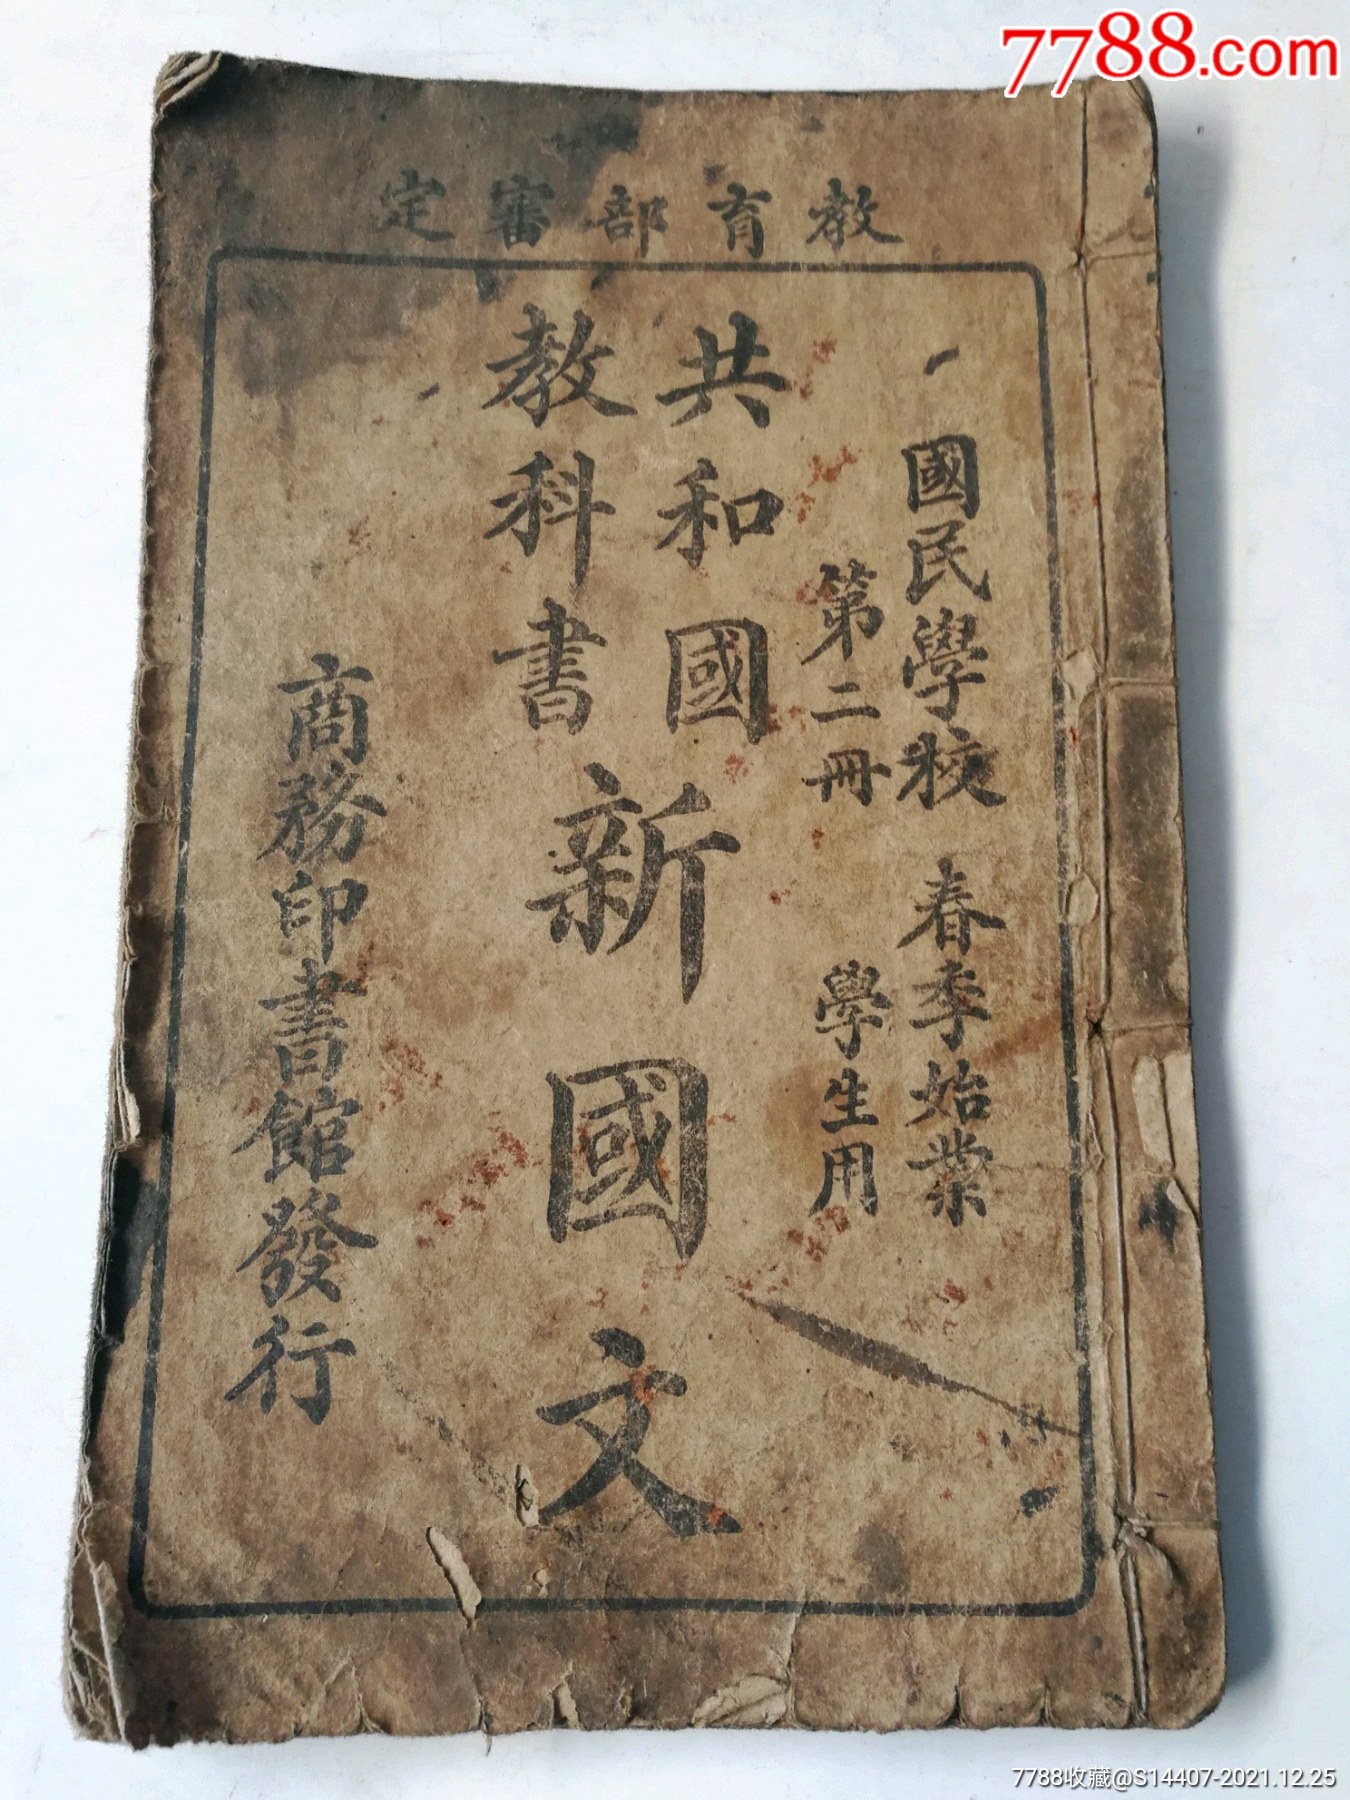 7788.com
教育部審定
國民學校 春季始業
第二冊 學生用
共和國
教科書
新國文
商務印書館發行
7788收藏@S14407-2021.12.25